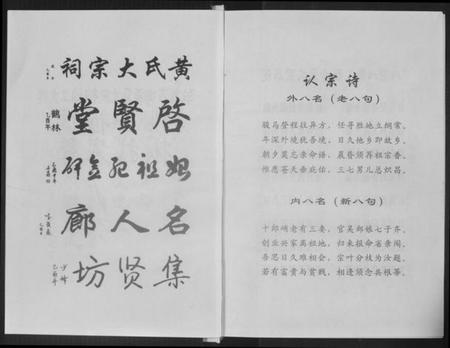 黄氏大宗祠
啓賢堂
妣祖
名人廊
集贤坊
鶴林
认宗诗
外八名（老八句）
骏马登程往异方，任寻胜地立纲常。
年深外境犹吾境，日久他乡即故乡。
朝夕莫忘亲命语，晨昏须荐祖宗香。
惟愿苍天垂庇佑，三七男儿总炽昌。
内八名（新八句）
十郎 老有三妻，官吴郑娘七子齐。
创业兴家离祖地，归来报命省亲闱。
吾思日久难相会，宗叶分枝为汝题。
若有富贵与贫贱，相逢须念共根蒂。